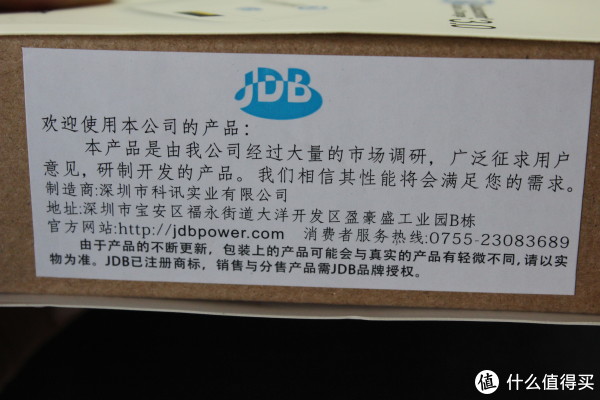 JDB
欢迎使用本公司的产品:
本产品是由我公司经过大量的市场调研,广泛征求用户
意见,研制开发的产品。我们相信其性能将会满足您的需求。
制造商:深圳市科讯实业有限公司
地址:深圳市宝安区福永街道大洋开发区盈豪盛工业园B栋
官方网站:http://jdbpower.com 消费者服务热线:0755-23083689
由于产品的不断更新,包装上的产品可能会与真实的产品有轻微不同,请以实
物为准。JDB已注册商标,销售与分售产品需JDB品牌授权。
值 什么值得买